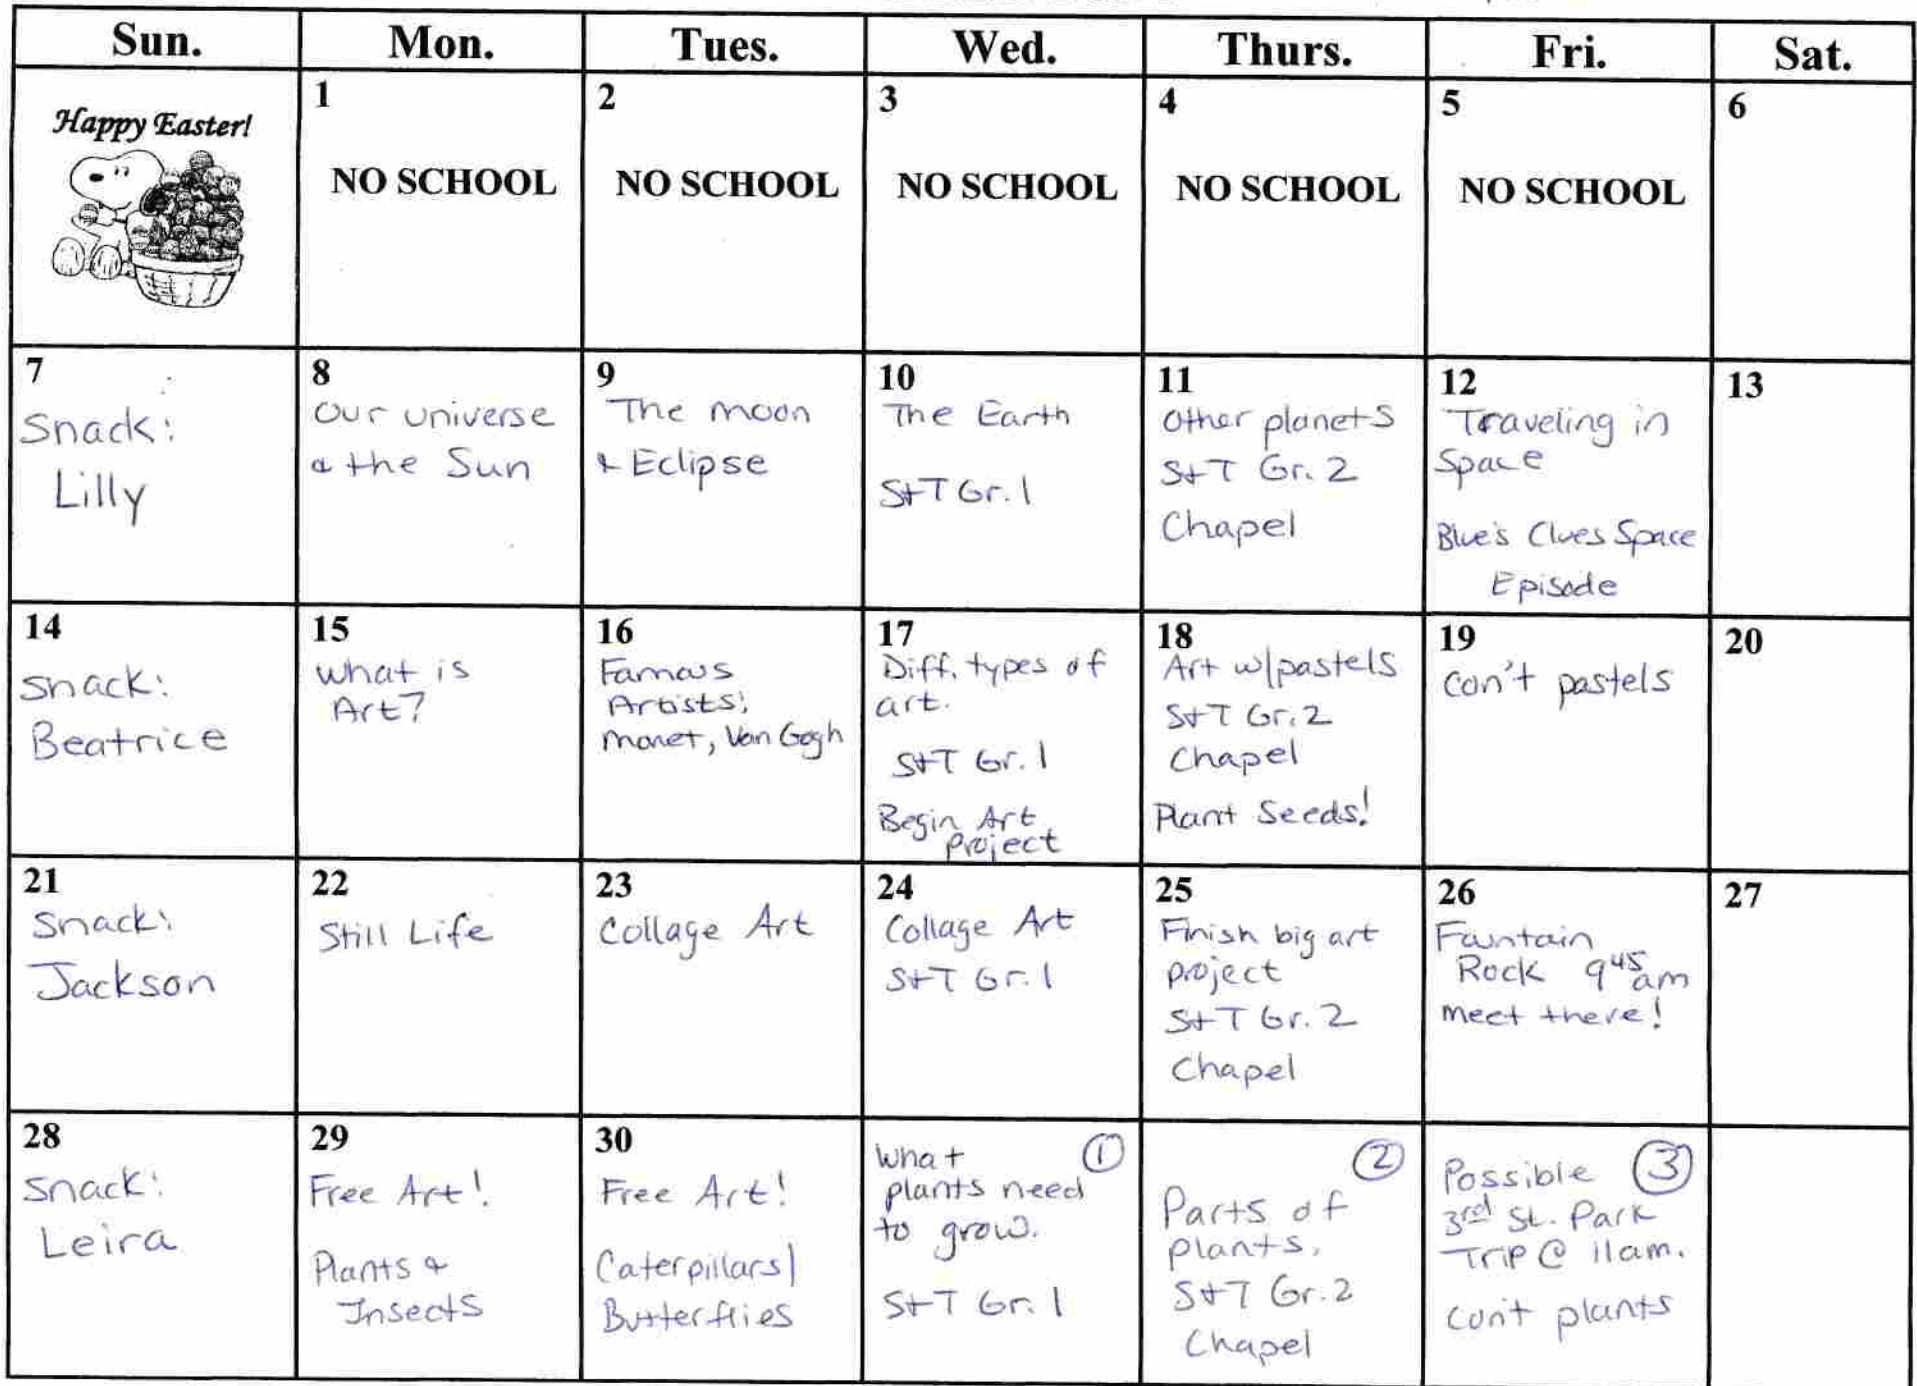 Sun.
Mon.
Tues.
Wed.
Thurs.
Fri.
Sat.
Happy Easter!
1
NO SCHOOL
2
NO SCHOOL
3
NO SCHOOL
4
NO SCHOOL
5
NO SCHOOL
6
7
Snack:
Lilly
8
Our universe
& the Sun
9
The moon
& Eclipse
10
The Earth
S+T Gr. 1
11
Other planets
S+T Gr. 2
Chapel
12
Traveling in
Space
Blue's Clues Space
Episode
13
14
Snack:
Beatrice
15
What is
Art?
16
Famous
Artists:
Monet, Van Gogh
17
Diff. types of
art.
S+T Gr. 1
Begin Art
Project
18
Art w/pastels
S+T Gr. 2
Chapel
Plant Seeds!
19
Con't pastels
20
21
Snack:
Jackson
22
Still Life
23
Collage Art
24
Collage Art
S+T Gr. 1
25
Finish big art
project
S+T Gr. 2
Chapel
26
Fountain
Rock 9⁴⁵am
meet there!
27
28
Snack:
Leira
29
Free Art!
Plants &
Insects
30
Free Art!
Caterpillars/
Butterflies
What ①
plants need
to grow.
S+T Gr. 1
②
Parts of
plants.
S+T Gr. 2
Chapel
Possible ③
3rd St. Park
Trip @ 11am.
Con't plants